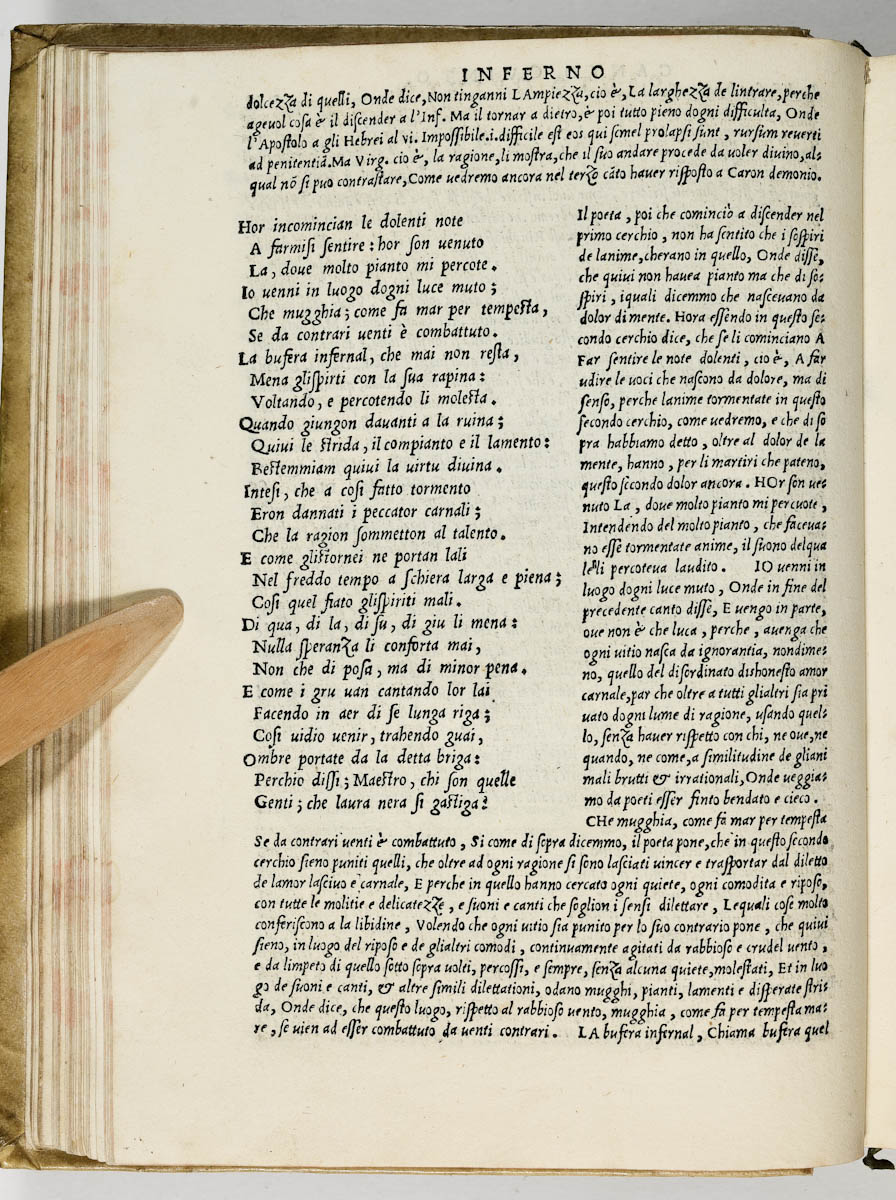 INFERNO
dolcezza di quelli, Onde dice, Non tinganni LAmpiezza, cio è, La larghezza de lintrare, perche
ageuol cosa è il discender a l'Inf. Ma il tornar a dietro, è poi tutto pieno dogni difficulta, Onde
l'Apostolo a gli Hebrei al vi. Impossibile.i.difficile est eos qui semel prolapsi sunt, rursum reuerti
ad penitentiã. Ma Virg. cio è, la ragione, li mostra, che il suo andare procede da voler diuino, al⸗
qual nõ si puo contrastare, Come uedremo ancora nel terzo cãto hauer risposto a Caron demonio.
Hor incomincian le dolenti note
A farmisi sentire: hor son uenuto
La, doue molto pianto mi percote.
Io uenni in luogo dogni luce muto;
Che mugghia; come fa mar per tempesta,
Se da contrari uenti è combattuto.
La bufera infernal, che mai non resta,
Mena glispirti con la sua rapina:
Voltando, e percotendo li molesta.
Quando giungon dauanti a la ruina;
Quiui le strida, il compianto e il lamento:
Bestemmiam quiui la uirtu diuina.
Intesi, che a cosi fatto tormento
Eron dannati i peccator carnali;
Che la ragion sommetton al talento.
E come glistornei ne portan lali
Nel freddo tempo a schiera larga e piena;
Cosi quel fiato glispiriti mali.
Di qua, di la, di su, di giu li mena:
Nulla speranza li conforta mai,
Non che di posa, ma di minor pena.
E come i gru uan cantando lor lai
Facendo in aer di se lunga riga;
Cosi uidio uenir, trahendo guai,
Ombre portate da la detta briga:
Perchio dissi; Maestro, chi son quelle
Genti; che laura nera si gastiga?
Il poeta, poi che cominciò a discender nel
primo cerchio, non ha sentito che i sospiri
de lanime, cherano in quello, Onde disse,
che quiui non hauea pianto ma che di so⸗
spiri, iquali dicemmo che nasceuano da
dolor di mente. Hora essendo in questo se⸗
condo cerchio dice, che se li cominciano A
Far sentire le note dolenti, cio è, A far
udire le uoci che nascono da dolore, ma di
senso, perche lanime tormentate in questo
secondo cerchio, come uedremo, e che di so
pra habbiamo detto, oltre al dolor de la
mente, hanno, per li martiri che pateno,
questo secondo dolor ancora. HOr son ue⸗
nuto La, doue molto pianto mi percuote,
Intendendo del molto pianto, che faceua⸗
no esse tormentate anime, il suono delqua
le li percoteua laudito. IO uenni in
luogo dogni luce muto, Onde in fine del
precedente canto disse, E uengo in parte,
oue non è che luca, perche, auenga che
ogni uitio nasca da ignorantia, nondime⸗
no, quello del disordinato dishonesto amor
carnale, par che oltre a tutti glialtri sia pri
uato dogni lume di ragione, usando quel⸗
lo, senza hauer rispetto con chi, ne oue, ne
quando, ne come, a similitudine de gliani
mali brutti & irrationali, Onde ueggia⸗
mo da poeti esser finto bendato e cieco.
CHe mugghia, come fa mar per tempesta
Se da contrari uenti è combattuto, Si come di sopra dicemmo, il poeta pone, che in questo secondo
cerchio sieno puniti quelli, che oltre ad ogni ragione si sono lasciati uincer e trasportar dal diletto
de lamor lasciuo e carnale, E perche in quello hanno cercato ogni quiete, ogni comodita e riposo,
con tutte le molitie e delicatezze, e suoni e canti che soglion i sensi dilettare, Lequali cose molto
conferiscono a la libidine, Volendo che ogni uitio sia punito per lo suo contrario pone, che quiui
sieno, in luogo del riposo e de glialtri comodi, continuamente agitati da rabbioso e crudel uento,
e da limpeto di quello sotto sopra uolti, percossi, e sempre, senza alcuna quiete, molestati, Et in luo
go de suoni e canti, & altre simili dilettationi, odano mugghi, pianti, lamenti e disperate stri⸗
da, Onde dice, che questo luogo, rispetto al rabbioso uento, mugghia, come fa per tempesta ma⸗
re, se uien ad esser combattuto da uenti contrari. LA bufera infernal, Chiama bufera quel